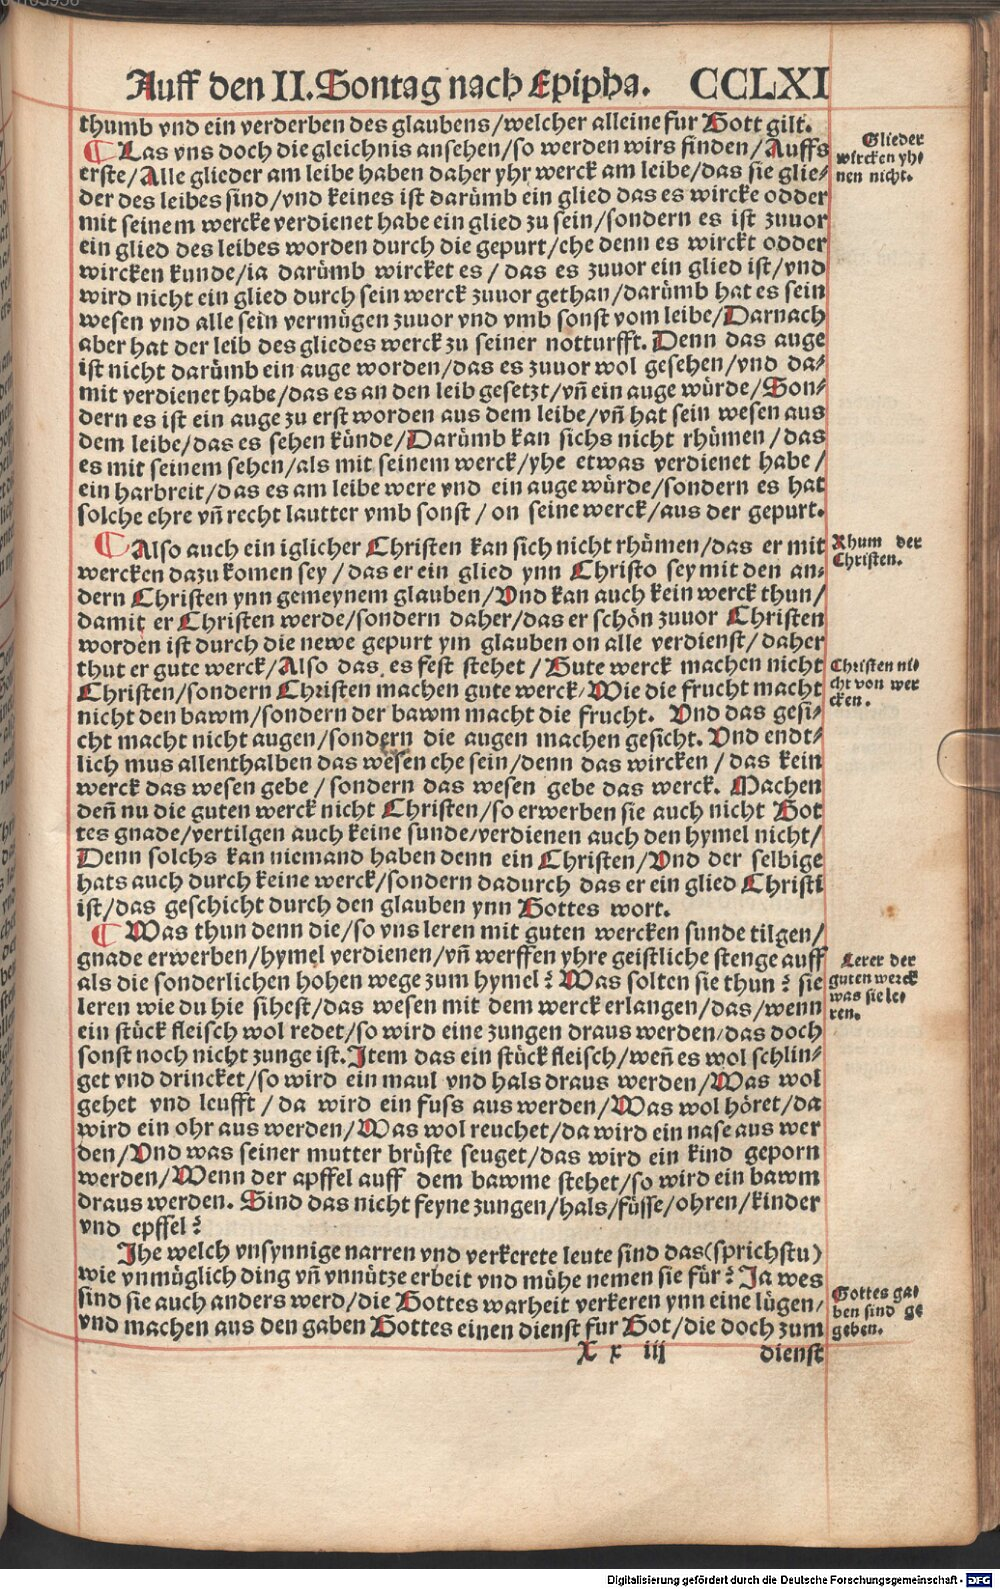 Auff den II. Sontag nach Epipha. CCLXI
thumb vnd ein verderben des glaubens/welcher alleine fur Gott gilt.
Las vns doch die gleichnis ansehen/so werden wirs finden/Auffs
erste/Alle glieder am leibe haben daher yhr werck am leibe/das sie glie-
der des leibes sind/vnd keines ist darümb ein glied das es wircke odder
mit seinem wercke verdienet habe ein glied zu sein/sondern es ist zuuor
ein glied des leibes worden durch die gepurt/ehe denn es wirckt odder
wircken kunde/ia darümb wircket es/das es zuuor ein glied ist/vnd
wird nicht ein glied durch sein werck zuuor gethan/darümb hat es sein
wesen vnd alle sein vermügen zuuor vnd vmb sonst vom leibe/Darnach
aber hat der leib des gliedes werck zu seiner notturfft. Denn das auge
ist nicht darümb ein auge worden/das es zuuor wol gesehen/vnd da-
mit verdienet habe/das es an den leib gesetzt/vñ ein auge würde/Son-
dern es ist ein auge zu erst worden aus dem leibe/vñ hat sein wesen aus
dem leibe/das es sehen künde/Darümb kan sichs nicht rhümen/das
es mit seinem sehen/als mit seinem werck/yhe etwas verdienet habe/
ein harbreit/das es am leibe were vnd ein auge würde/sondern es hat
solche ehre vñ recht lautter vmb sonst/on seine werck/aus der gepurt.
Glieder
wircken yhe
nen nicht.
Also auch ein iglicher Christen kan sich nicht rhümen/das er mit
wercken dazu komen sey/das er ein glied ynn Christo sey mit den an-
dern Christen ynn gemeynem glauben/Vnd kan auch kein werck thun/
damit er Christen werde/sondern daher/das er schön zuuor Christen
worden ist durch die newe gepurt ym glauben on alle verdienst/daher
thut er gute werck/Also das es fest stehet/Gute werck machen nicht
Christen/sondern Christen machen gute werck/Wie die frucht macht
nicht den bawm/sondern der bawm macht die frucht. Vnd das gesi-
cht macht nicht augen/sondern die augen machen gesicht. Vnd endt-
lich mus allenthalben das wesen ehe sein/denn das wircken/das kein
werck das wesen gebe/sondern das wesen gebe das werck. Machen
deñ nu die guten werck nicht Christen/so erwerben sie auch nicht Got
tes gnade/vertilgen auch keine sunde/verdienen auch den hymel nicht/
Denn solchs kan niemand haben denn ein Christen/Vnd der selbige
hats auch durch keine werck/sondern dadurch das er ein glied Christi
ist/das geschicht durch den glauben ynn Gottes wort.
Rhum der
Christen.
Christen ni-
cht von wer
cken.
Was thun denn die/so vns leren mit guten wercken sunde tilgen/
gnade erwerben/hymel verdienen/vñ werffen yhre geistliche stenge auff
als die sonderlichen hohen wege zum hymel? Was solten sie thun? sie
leren wie du hie sihest/das wesen mit dem werck erlangen/das/wenn
ein stück fleisch wol redet/so wird eine zungen draus werden/das doch
sonst noch nicht zunge ist. Item das ein stück fleisch/weñ es wol schlin-
get vnd drincket/so wird ein maul vnd hals draus werden/Was wol
gehet vnd leufft/da wird ein fuss aus werden/Was wol höret/da
wird ein ohr aus werden/Was wol reuchet/da wird ein nase aus wer
den/Vnd was seiner mutter brüste seuget/das wird ein kind geporn
werden/Wenn der apffel auff dem bawme stehet/so wird ein bawm
draus werden. Sind das nicht feyne zungen/hals/füsse/ohren/kinder
vnd epffel?
Lerer der
guten werck
was sie le-
ren.
Ihe welch vnsynnige narren vnd verkerete leute sind das(sprichstu)
wie vnmüglich ding vñ vnnütze erbeit vnd mühe nemen sie für? Ja wes
sind sie auch anders werd/die Gottes warheit verkeren ynn eine lügen/
vnd machen aus den gaben Gottes einen dienst fur Got/die doch zum
Gottes ga-
ben sind ge
geben.
X x iii dienst
Digitalisierung gefördert durch die Deutsche Forschungsgemeinschaft - DFG